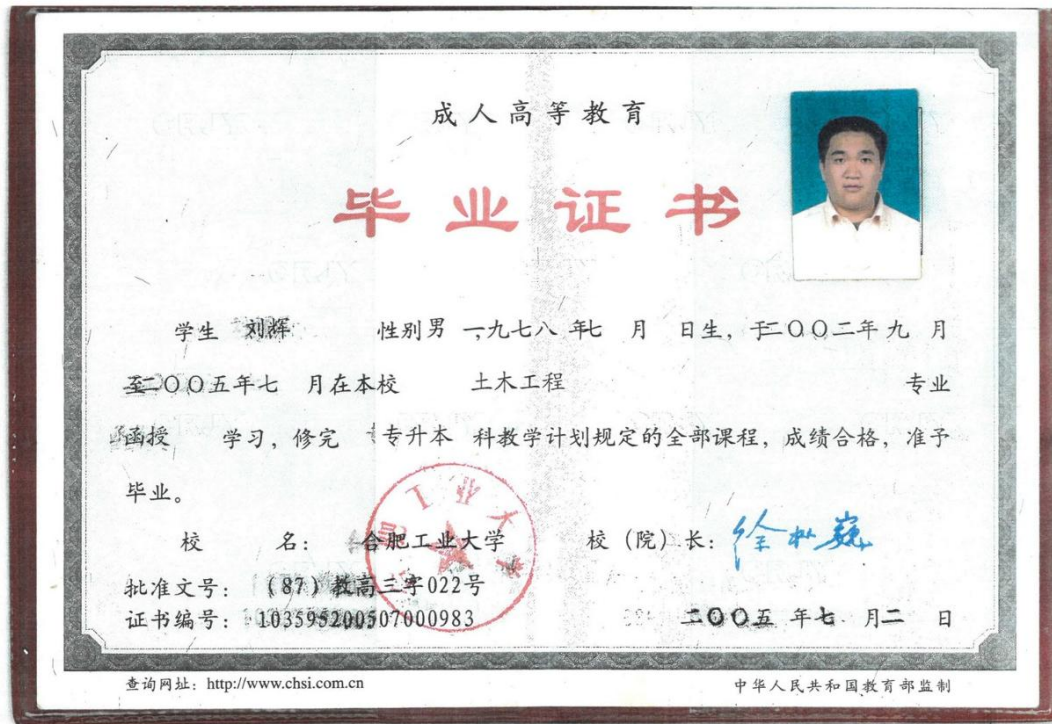 成人高等教育
毕业证书
学生 刘辉 性别 男 一九七八 年七 月 日生，于二〇〇二年 九 月
至二〇〇五年七 月在本校 土木工程 专业
函授 学习，修完 专升本 科教学计划规定的全部课程，成绩合格，准予
毕业。
校 名： 合肥工业大学 校（院）长：徐枞巍
批准文号：（87）教高三字022号
证书编号：103595200507000983 二〇〇五 年七 月二 日
查询网址：http://www.chsi.com.cn 中华人民共和国教育部监制